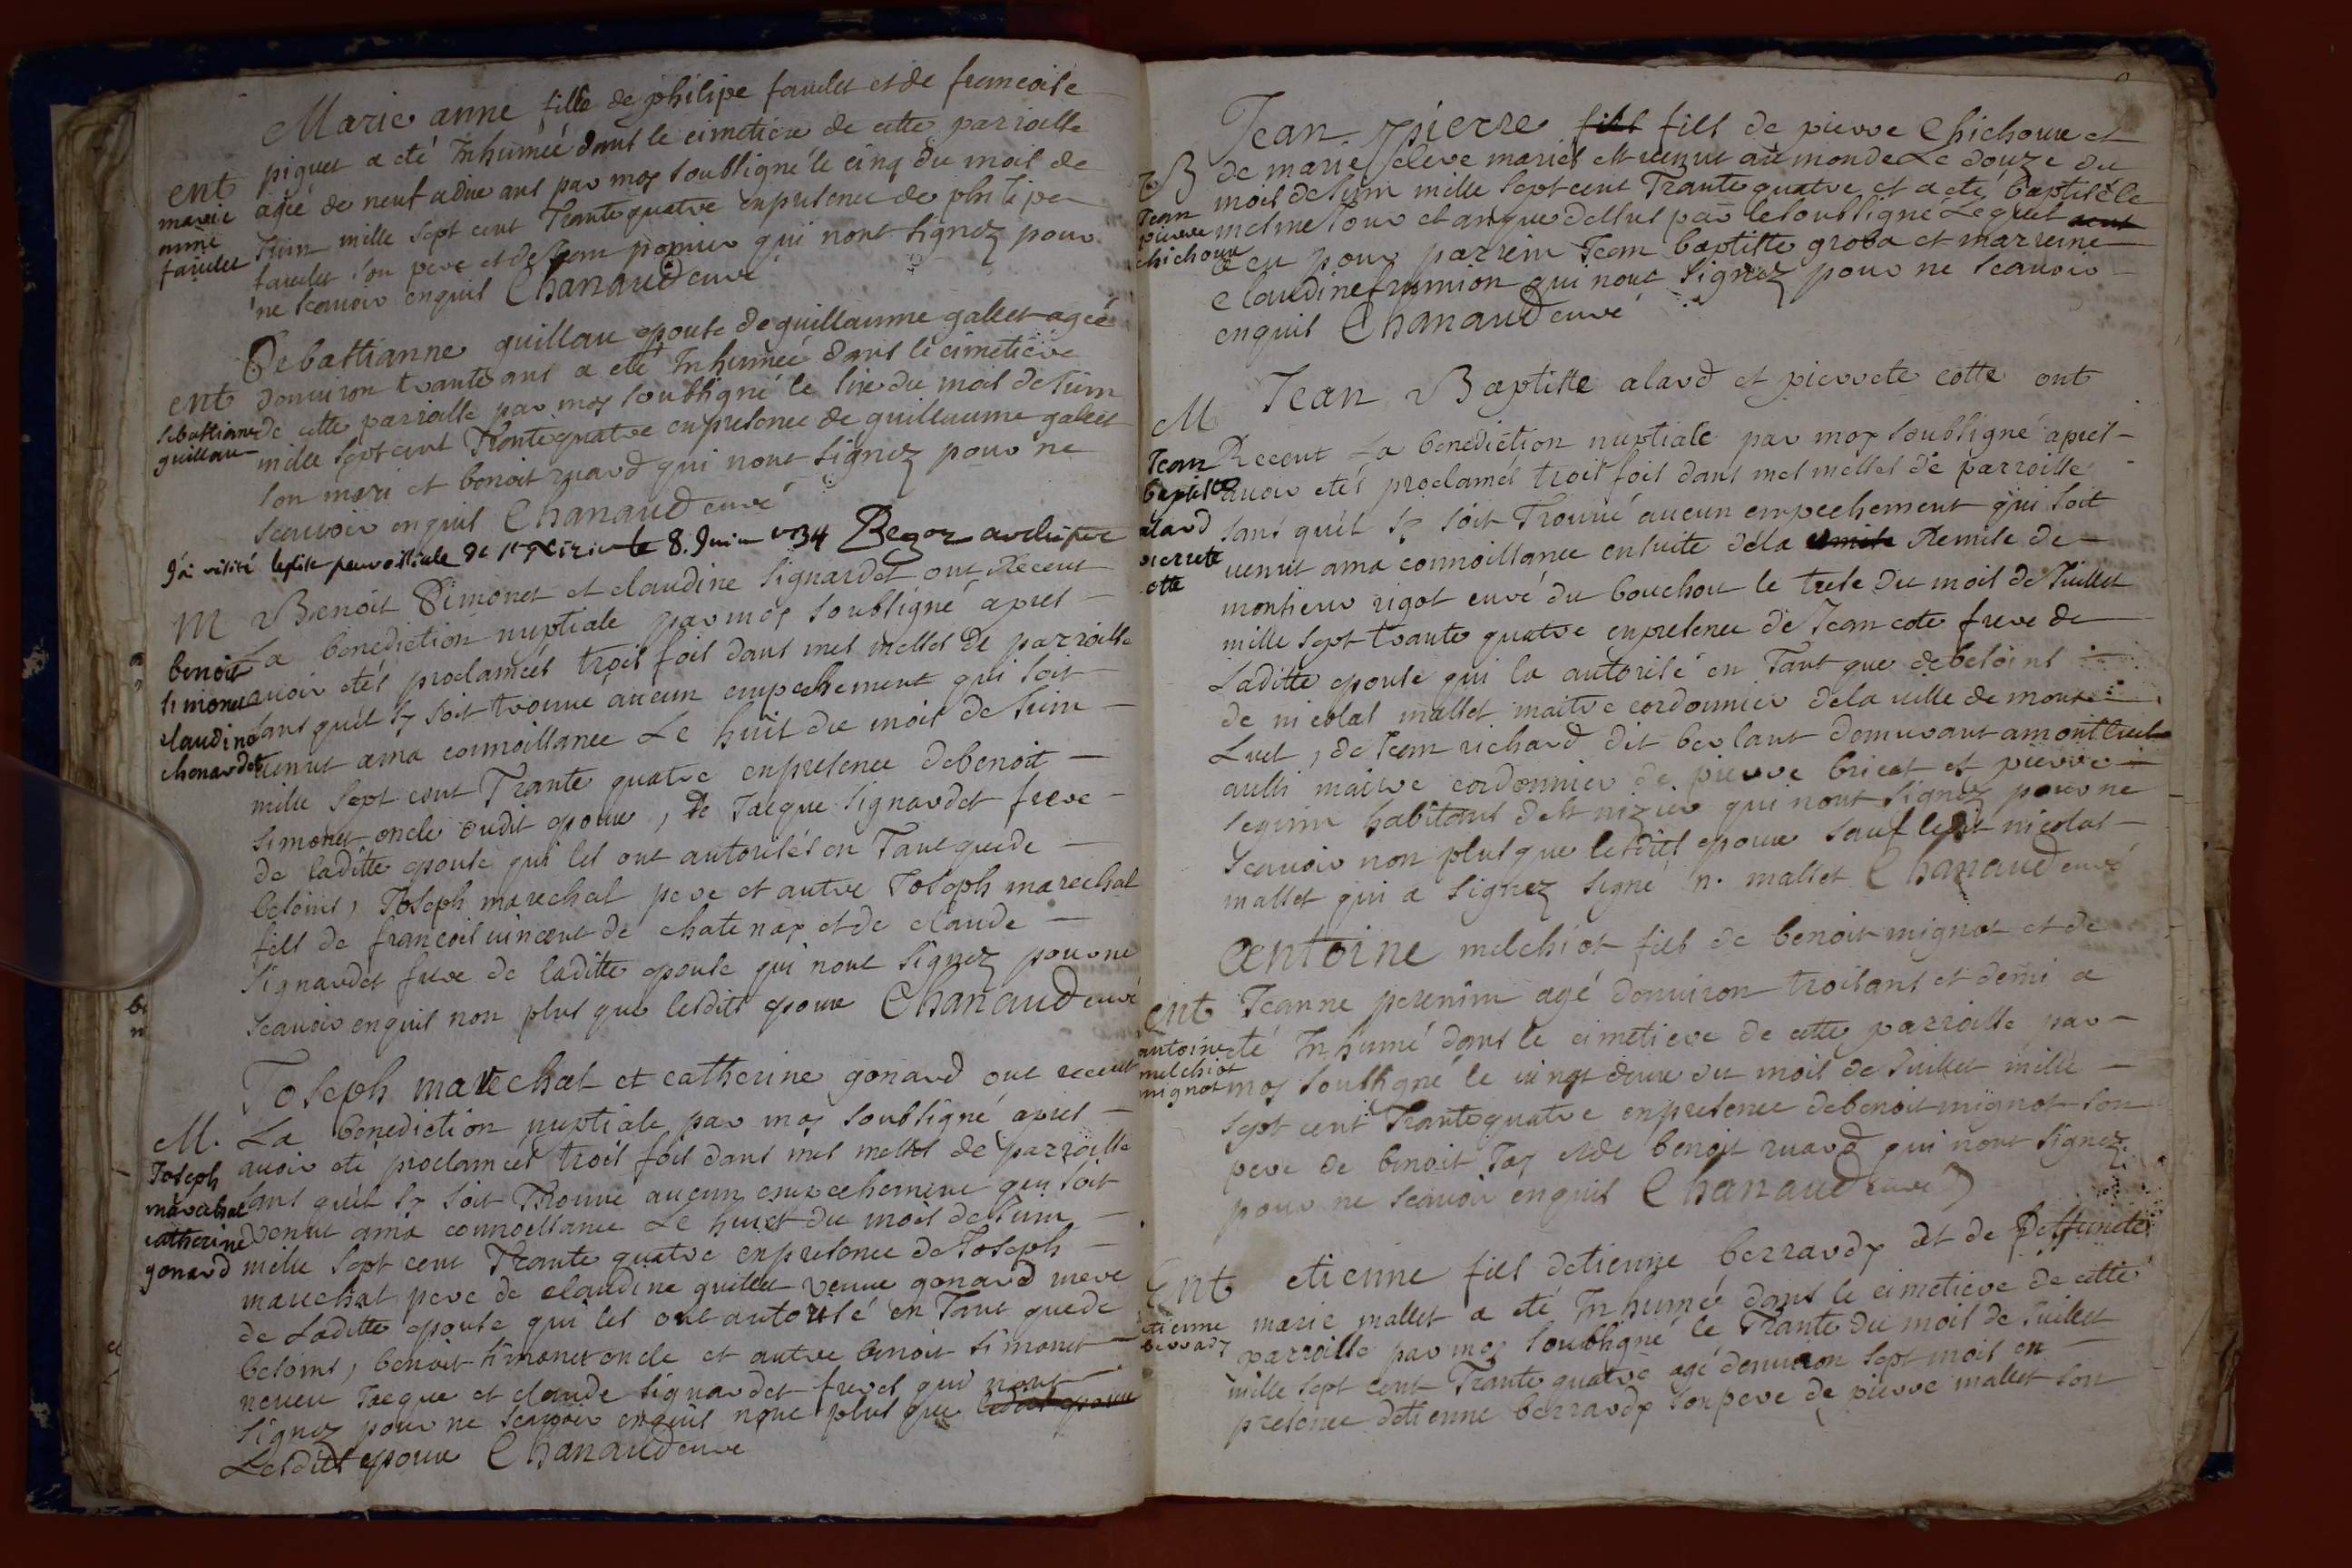 Marie anne fille de philipe faudet et de francoise
ent piguet a eté Inhumée dans le cimetiere de cette parroisse
marie agée de neuf a dix ans par moy soubsigné le cinq du mois de
anne Juin mille sept cent Trante quatre en presence de philipe
faudet faudet son pere et de Jean pomier qui n'ont signez pour
ne scavoir enquis Chanaud curé
Sebastianne guillau epouse de guillaume gallet agée
ent d'enuiron trante ans a eté Inhumée dans le cimetiere
sebastianne de cette parroisse par moy soubsigné le sixe du mois de Juin
guillau mille sept cent Trante quatre en presence de guillaume gallet
son mari et benoit ruard qui n'ont signez pour ne
scauoir enquis Chanaud curé
J'ai visité leglise parroissiale de st nizier le 8. Juin 1734 archiptre
M Benoit Simonet et claudine signardet ont Receut
La benediction nuptiale par moy soubsigné apres
benoit simonet auoir etés proclamées trois fois dans mes messes de parroisse
claudine sans quil sy soit trouue aucun empechement qui soit
chonardet uenut a ma connoissance Le huit du mois de Juin
mille sept cent Trante quatre en presence de benoit
simonet oncle dudit epoux, De Jacque signardet frere
de laditte epouse qui les ont autorisés en Tant que de
besoins, Joseph marechal pere et autre Joseph marechal
fils de francois uincent de chatenay et de claude
signardet frere de laditte epouse qui n'ont signez pour ne
scauoir enquis non plus que lesdits epoux Chanaud curé
Joseph marechal et catherine gonard ont receut
M. La benediction nuptiale par moy soubsigné apres
Joseph auoir eté proclamées trois fois dans mes messes de parroisse
marechal sans quil sy soit Trouue aucun empechement qui soit
catherine venut a ma connoissance Le huict du mois de Juin
gonard mille sept cent Trante quatre en presence de Joseph
marechal pere de claudine guillet veuue gonard mere
de Laditte epouse qui les ont autorisé en Tant que de
besoins, benoit simonet oncle et autre benoit simonet
neueu Jacque et claude signardet freres qui n'ont
signez pour ne scauoir enquis none plus que lesdits epoux
Lesdits epoux Chanaud curé
Jean pierre fils fils de pierre Chichoux et
B de marie seleve mariés est uenut au monde Le douze du
Jean mois de Juin mille sept cent Trante quatre et a eté baptisé le
pierre mesme Jour et an que dessus par le soubsigné Lequel
chichoux a eu pour parrein Jean baptiste groba et marreine
claudine frumion qui n'ont signez pour ne scauoir
enquis Chanaud curé
Jean Baptiste alard et pierrete cotte ont
M
Jean Receut La benediction nuptiale par moy soubsigné apres
baptiste auoir etés proclamés trois fois dans mes messes de parroisse
alard sans quil sy soit Trouué aucun empechement qui soit
pierrete uenut a ma connoissance ensuite de la Remise de
cotte
monsieur rigot curé du bouchou le trese du mois de Juillet
mille sept trante quatre en presence de Jean cote frere de
Laditte epouse qui la autorisé en Tant que de besoins
de nicolas mallet maitre cordonnier de la uille de mont
Luel, de Jean richard dit berlant demeurant a montluel
aussi maitre cordonnier de pierre bricat et pierre
seguin habitans de st nizier qui n'ont signez pour ne
scauoir non plus que lesdits epoux sauf ledit nicolas
mallet qui a signez signé n. mallet Chanaud curé
antoine melchiot fils de benoit mignot et de
ent Jeanne perenim agé d'enuiron trois ans et demi a
antoine eté Inhumé dans le cimetiere de cette parroisse par
melchiot mignot moy soubsigné le uingt deux du mois de Juillet mille
sept cent Trante quatre en presence de benoit mignot son
pere de benoit Jay et de benoit ruard qui n'ont signez
pour ne scauoir enquis Chanaud curé
Ent etienne fils detienne berrardy et de Deffuncte
etienne marie mallet a eté Inhumé dans le cimetiere de cette
berrardy parroisse par moy soubsigné le Trante du mois de Juillet
mille sept cent Trante quatre agé d'enuiron sept mois en
presence detienne berrardy son pere de pierre mallet son